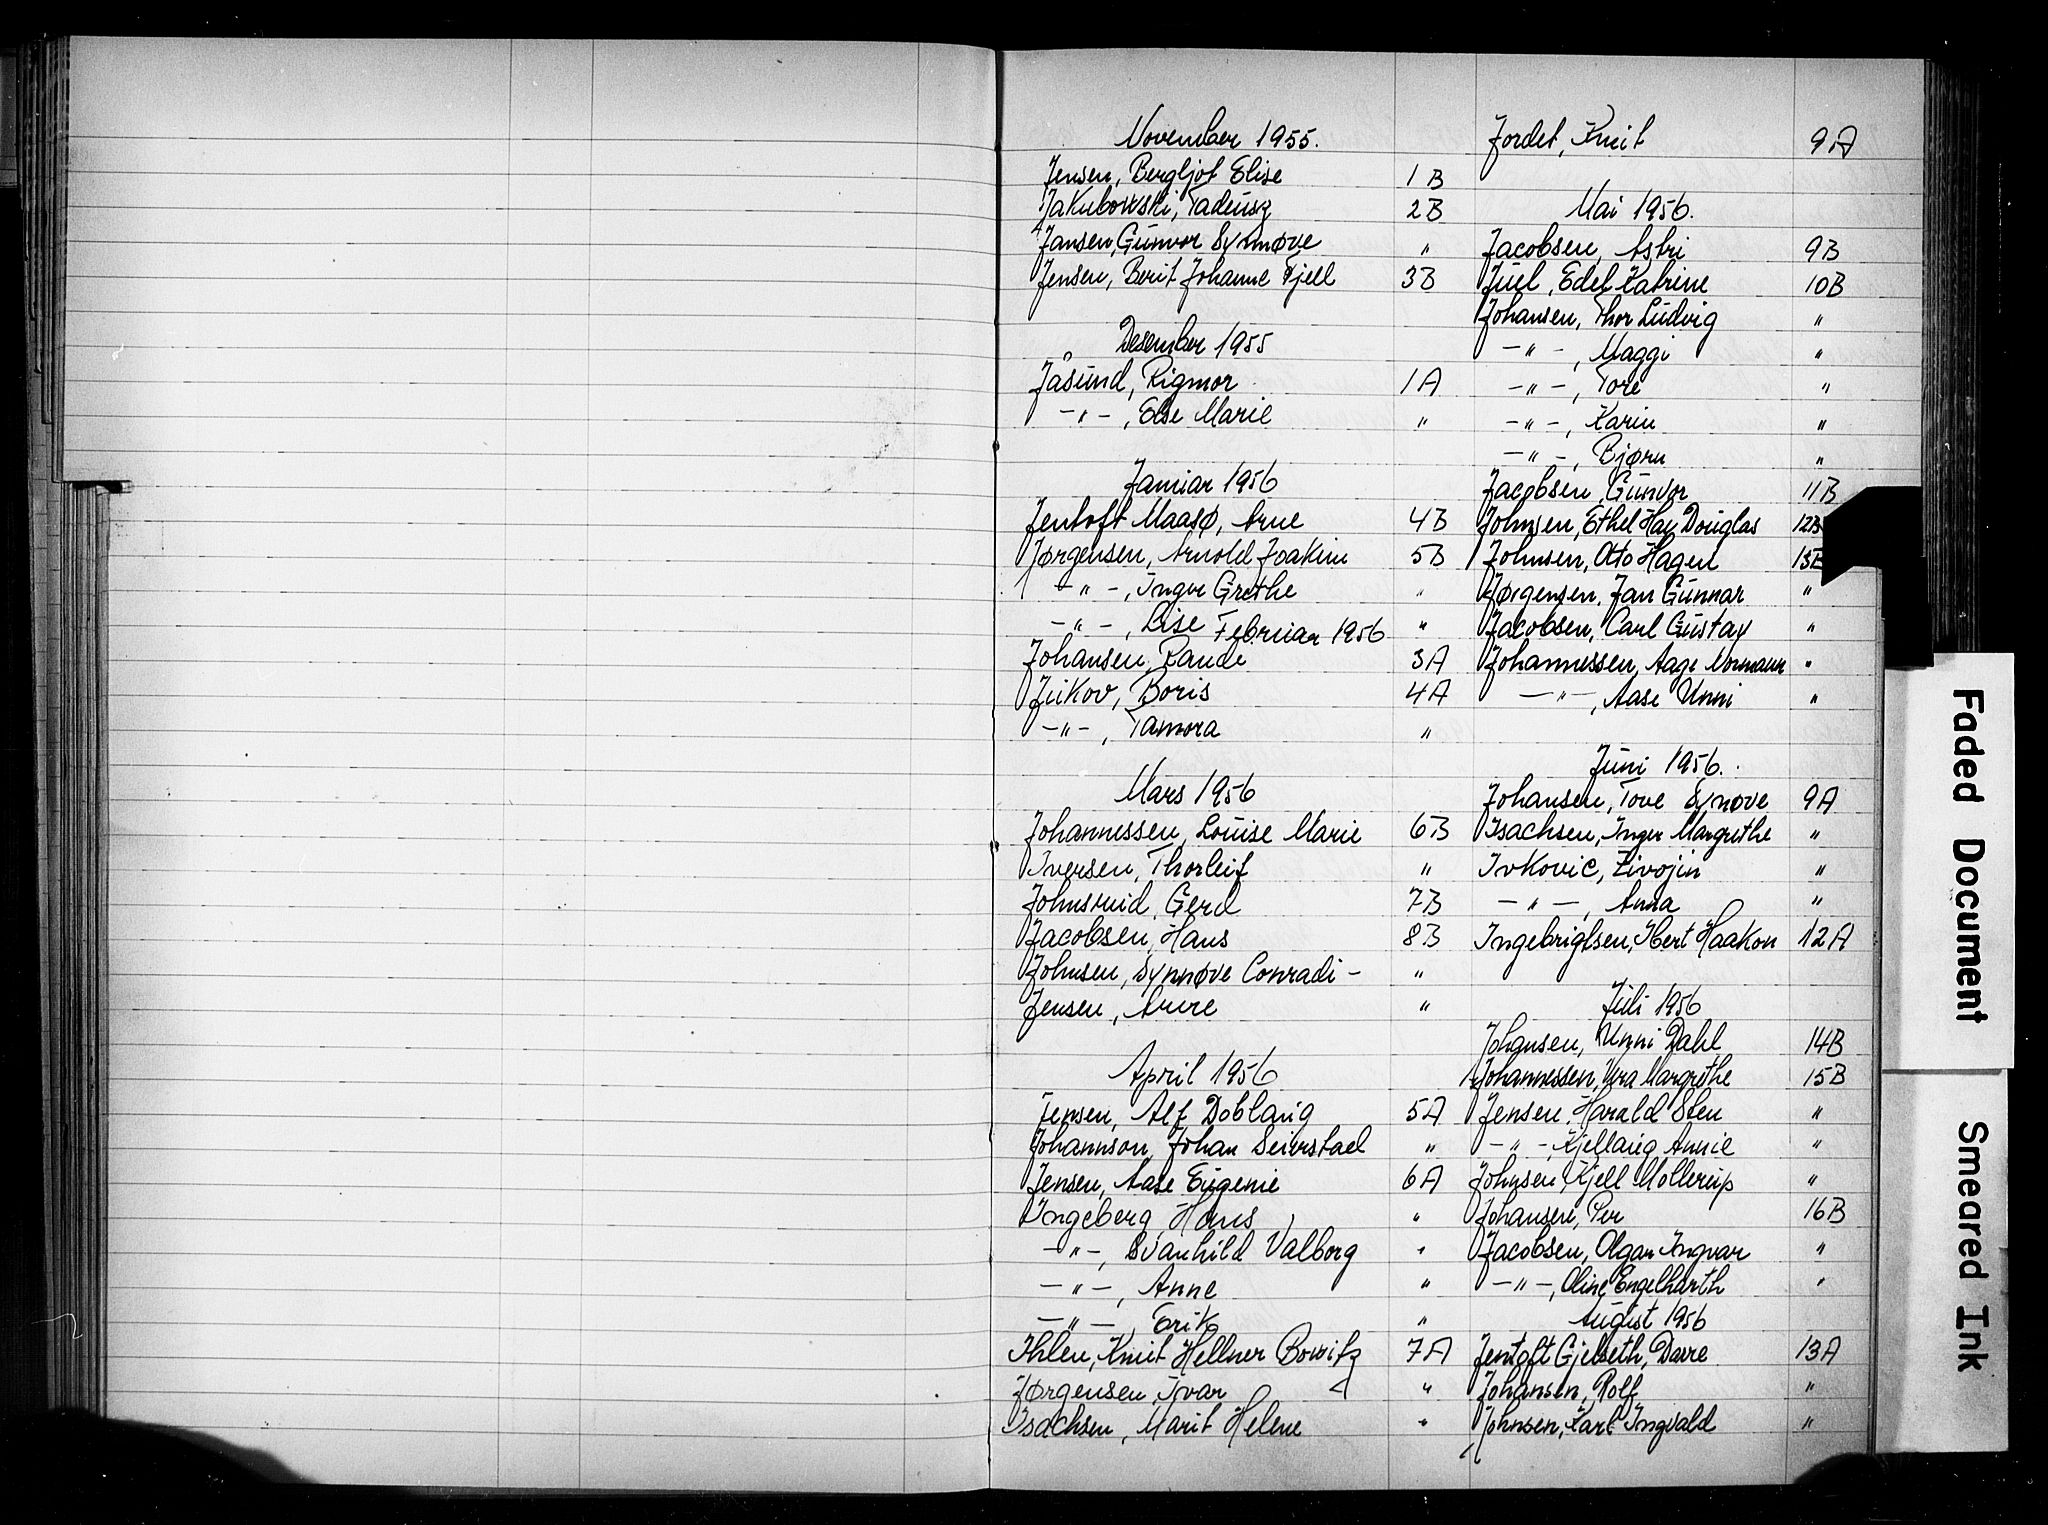 November 1955.
Jensen, Bergljot Elise 1B
Jakubowski, Tadeusz 2B
Jansen, Gunvor Synnøve "
Jensen, Berit Johanne Fjell 3B
Desember 1955
Jåsund, Rigmor 1A
-"-, Else Marie "
Januar 1956
Jentoft Maasø, Arne 4B
Jørgensen, Arnold Joakim 5B
-"-, Inger Grethe "
-"-, Lise "
Februar 1956
Johansen, Rande 3A
Juikov, Boris 4A
-"-, Tamora "
Mars 1956
Johannessen, Louise Marie 6B
Iversen, Thorleif "
Johnsrud, Gerd 7B
Jacobsen, Hans 8B
Johnsen, Synnøve Conradi- "
Jensen, Anne "
April 1956
Jensen, Alf Doblaug 5A
Johannson, Johan Seierstad "
Jensen, Aase Eugenie 6A
Ingeberg, Hans "
-"-, Svanhild Valborg "
-"-, Anne "
-"-, Erik "
Ihlen, Knut Hellner Bowitz 7A
Jørgensen, Ivar "
Isachsen, Marit Helene "
Jordet, Knut 9A
Mai 1956.
Jacobsen, Astri 9B
Juel, Edel Katrine 10B
Johansen, Thor Ludvig "
-"-, Maggi "
-"-, Tore "
-"-, Karin "
-"-, Bjørn "
Jacobsen, Gunvor 11B
Johnsen, Ethel Hay Douglas 12B
Johnsen, Otto Hagen 13B
Jørgensen, Jan Gunnar "
Jacobsen, Carl Gustav "
Johannessen, Aage Normann "
-"-, Aase Unni "
Juni 1956.
Johansen, Tove Synøve 9A
Isachsen, Inger Margrethe "
Ivkovic, Zivojin "
-"-, Anna "
Ingebrigtsen, Hert Haakon 12A
Juli 1956
Johansen, Unni Dahl 14B
Johannessen, Vera Margrethe 15B
Jensen, Harald Sten "
-"-, Kjellaug Annie "
Johnsen, Kjell Mollerup "
Johansen, Per 16B
Jacobsen, Olgar Ingvar "
-"-, Oline Engelharth "
August 1956
Jentoft Gjelseth, Davre 13A
Johansen, Rolf "
Johnsen, Karl Ingvald "
Faded Document
Smeared Ink